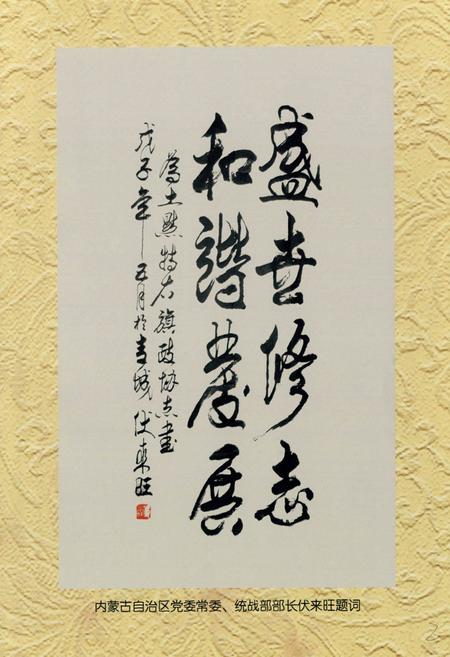 盛世修志
和諧發展
為土默特右旗政协志書
戊子年五月於青城 伏來旺
内蒙古自治区党委常委、统战部部长伏来旺题词
2